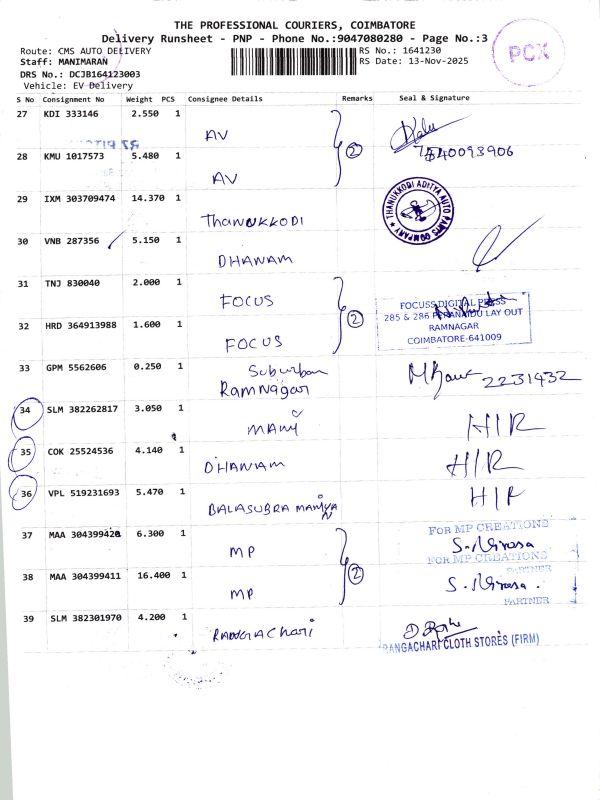 THE PROFESSIONAL COURIERS, COIMBATORE
Delivery Runsheet - PNP - Phone No.:9047080280 - Page No.:3
Route: CMS AUTO DELIVERY
RS No.: 1641230
Staff: MANIMARAN
RS Date: 13-Nov-2025
DRS No.: DCJB164123003
Vehicle: EV Delivery
PCX
S No Consignment No Weight PCS Consignee Details Remarks Seal & Signature
27 KDI 333146 2.550 1 AV
28 KMU 1017573 5.480 1 AV
2
7540093906
29 IXM 303709474 14.370 1 Thanukkodi
THANUKKODI ADITYA AUTO PARTS COMPANY
30 VNB 287356 5.150 1 DHANAM
31 TNJ 830040 2.000 1 FOCUS
32 HRD 364913988 1.600 1 FOCUS
2
FOCUSS DIGITAL PRESS
285 & 286 PERANAIDU LAY OUT
RAMNAGAR
COIMBATORE-641009
33 GPM 5562606 0.250 1 Suburban
Ramnagar
2231432
34 SLM 382262817 3.050 1 MANI H/R
35 COK 25524536 4.140 1 DHANAM H/R
36 VPL 519231693 5.470 1 BALASUBRAMANIYAN H/R
37 MAA 304399420 6.300 1 MP
FOR MP CREATIONS
PARTNER
38 MAA 304399411 16.400 1 MP
2
FOR MP CREATIONS
PARTNER
39 SLM 382301970 4.200 1 RANGAChari
RANGACHARI CLOTH STORES (FIRM)